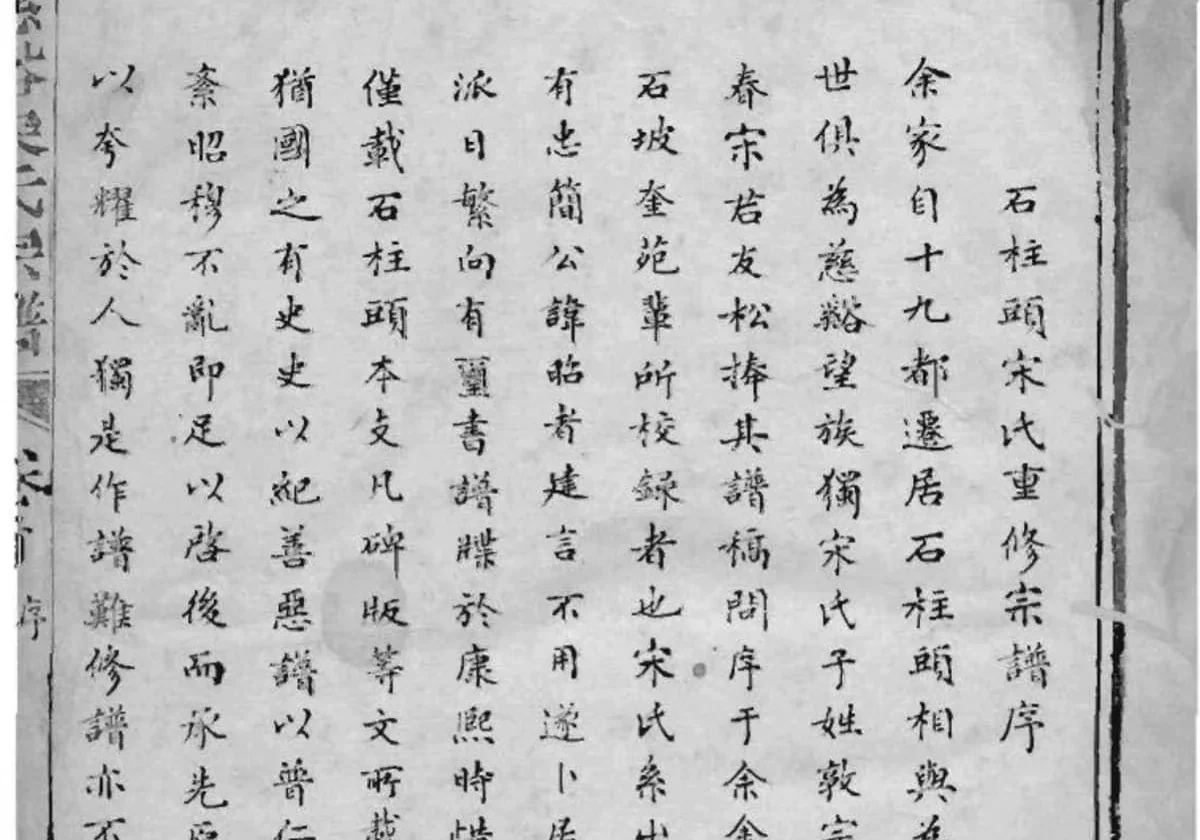 石柱頭宋氏重修宗譜序
余家自十九都遷居石柱頭相與為
世俱為慈谿望族獨宋氏子姓敦宗
春宋君友松捧其譜稿問序于余余
石坡奎苑輩所校録者也宋氏系出
有忠簡公諱昭者建言不用遂卜居
派日繁向有璽書譜牒於康熙時惜
僅載石柱頭本支凡碑版等文所載
猶國之有史史以紀善惡譜以普仁
紊昭穆不亂即足以啓後而承先
以夸耀於人獨是作譜難修譜亦不
序